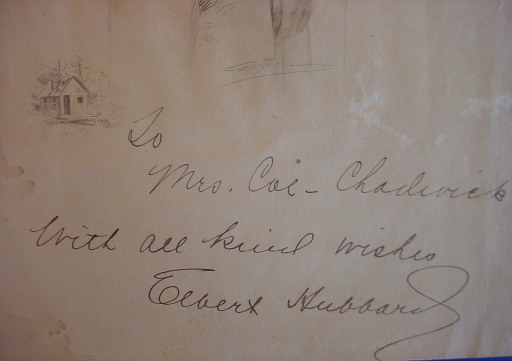 To
Mrs. Coe - Chadwick
With all kind wishes
Elbert Hubbard